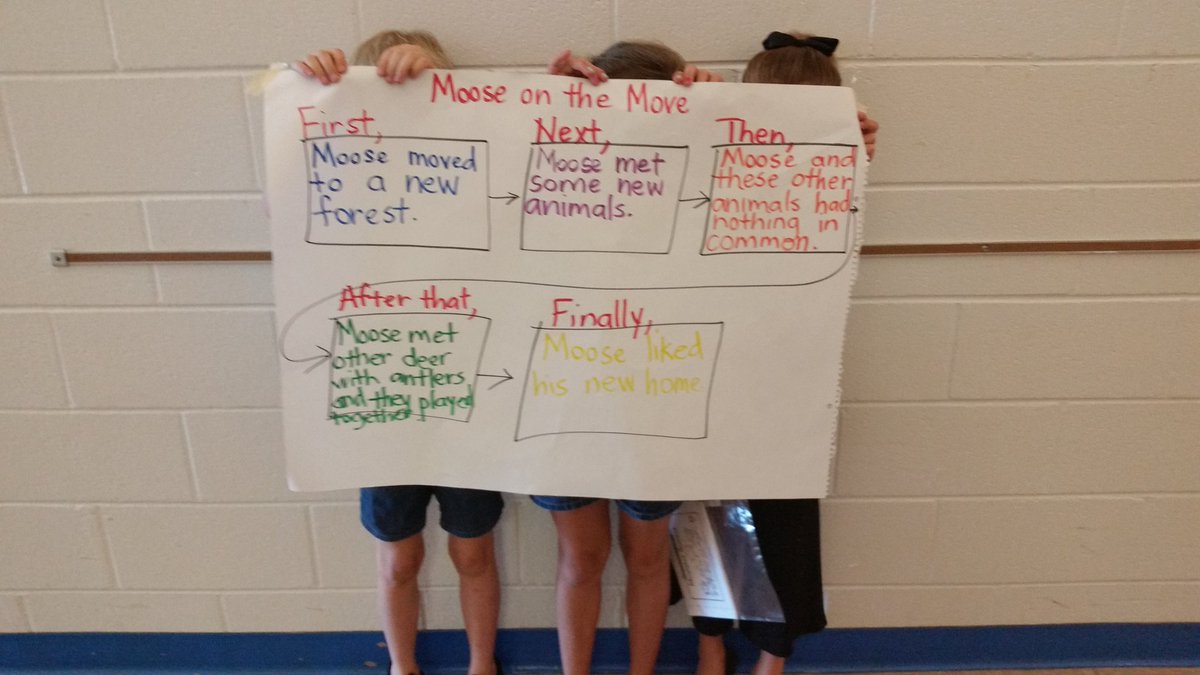 Moose on the Move
First,
Moose moved
to a new
forest.
Next,
Moose met
some new
animals.
Then,
Moose and
these other
animals had
nothing in
common.
After that,
Moose met
other deer
with antlers
and they played
together
Finally,
Moose liked
his new home